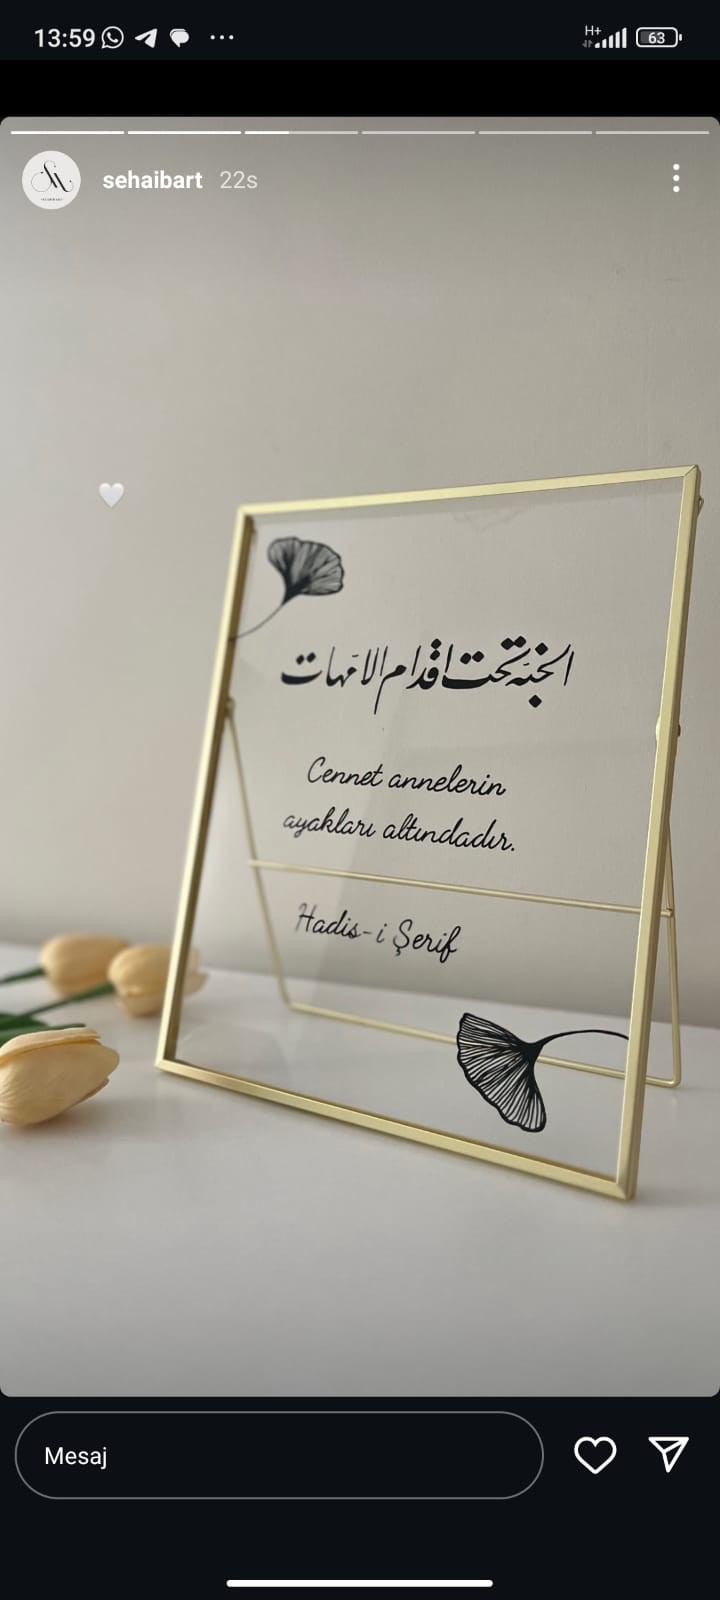 13:59
H+
63
sehaibart 22s
الجنة تحت اقدام الامهات
Cennet annelerin
ayakları altındadır.
Hadis-i Şerif
Mesaj